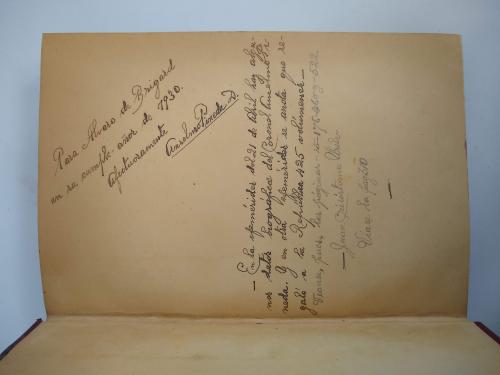 Para Alvaro de Brigard
en su cumple años de
1930.
Afectuosamente
Anselmo Pineda
— En la efemérides del 21 de Abril hay algu-
nos datos biograficos del Coronel Anselmo Pi-
neda. Y en otra efemérides se anota que re-
galó a la República 425 volúmenes —
Véanse, pues, las páginas
— Juan